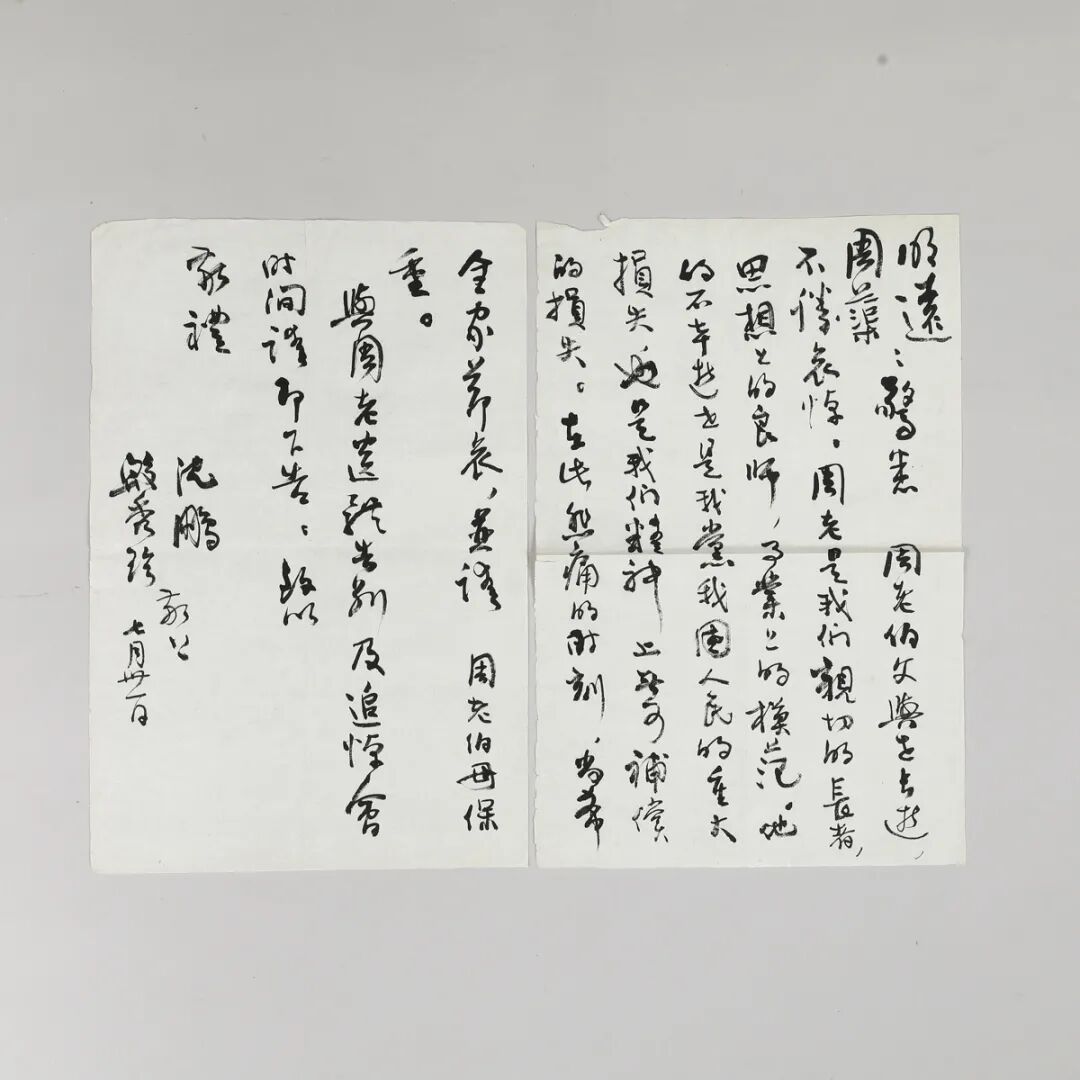 明遠：驚悉 周老伯父與世長逝，
周蕖
不勝哀悼。周老是我们親切的長者，
思想上的良师，事業上的模范。他
的不幸逝世是我黨我國人民的重大
損失，也是我们精神上無可補償
的損失。在此悲痛的时刻，尚希
全家节哀，並請 周老伯母保
重。
與周老遺體告别及追悼會
时间請即下告。致以
敬禮
沈鹏
殷秀珍 敬上
七月卅一日